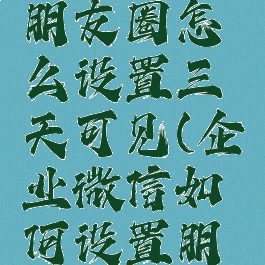 朋友圈怎
么设置三
天可见(企
业微信如
何设置朋